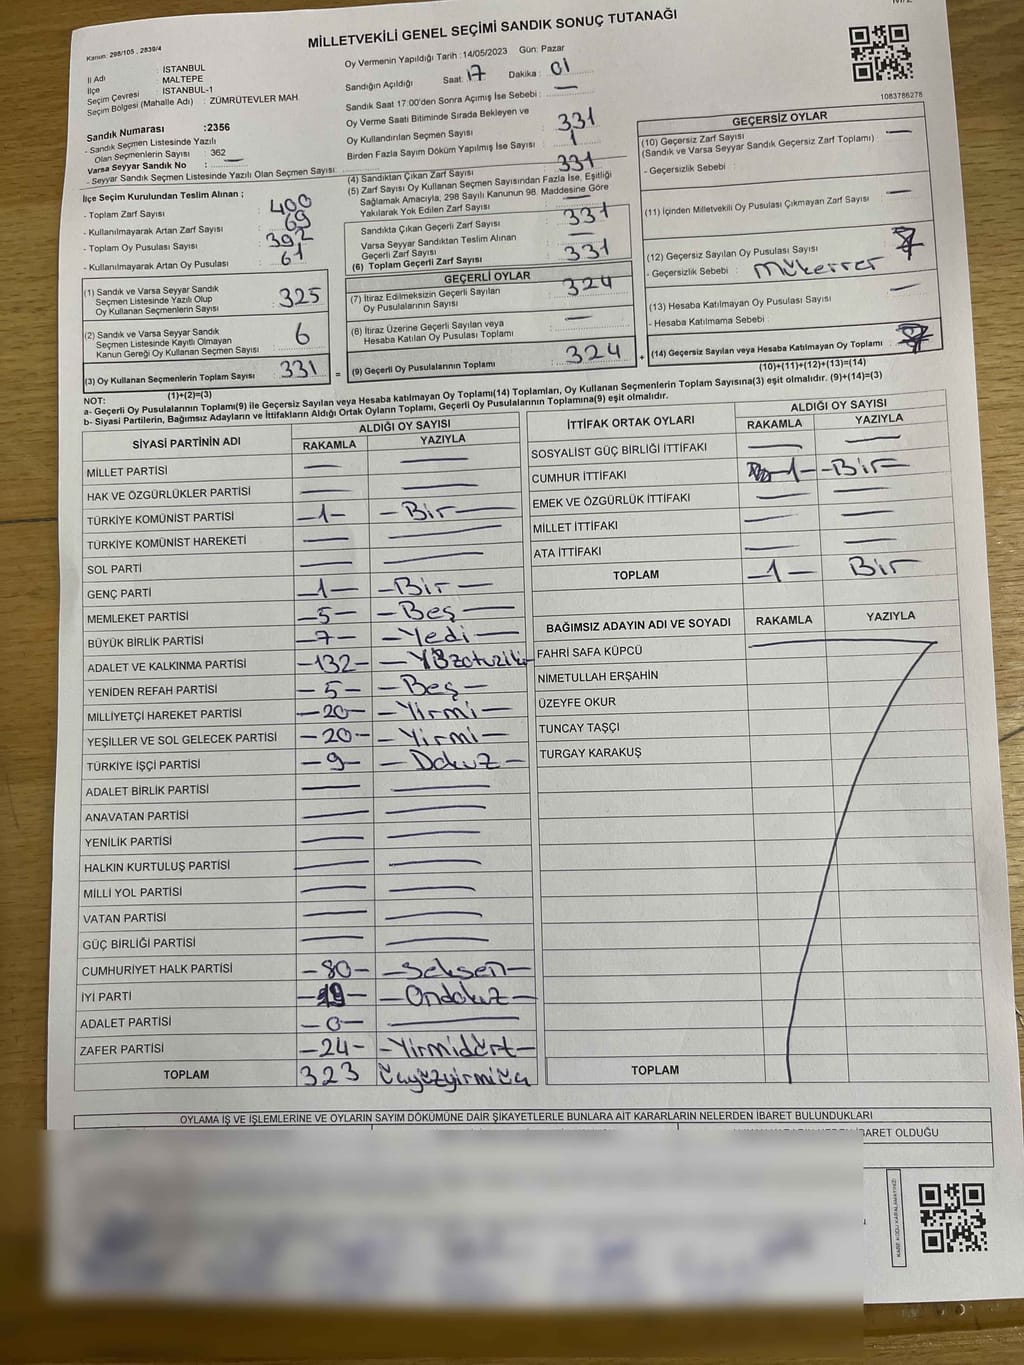 MİLLETVEKİLİ GENEL SEÇİMİ SANDIK SONUÇ TUTANAĞI
Kanun: 298/105 , 2839/4
İl Adı : İSTANBUL
İlçe : MALTEPE
Seçim Çevresi : İSTANBUL-1
Seçim Bölgesi (Mahalle Adı) : ZÜMRÜTEVLER MAH
Sandık Numarası :2356
- Sandık Seçmen Listesinde Yazılı
Olan Seçmenlerin Sayısı : 362
Varsa Seyyar Sandık No : —
- Seyyar Sandık Seçmen Listesinde Yazılı Olan Seçmen Sayısı:
Oy Vermenin Yapıldığı Tarih :14/05/2023 Gün: Pazar
Sandığın Açıldığı Saat: 17 Dakika : 01
Sandık Saat 17.00'den Sonra Açımış İse Sebebi : —
Oy Verme Saati Bitiminde Sırada Bekleyen ve
Oy Kullandırılan Seçmen Sayısı 331
Birden Fazla Sayım Döküm Yapılmış İse Sayısı 1
1083786278
İlçe Seçim Kurulundan Teslim Alınan ;
- Toplam Zarf Sayısı : 400
- Kullanılmayarak Artan Zarf Sayısı : 69
- Toplam Oy Pusulası Sayısı : 392
- Kullanılmayarak Artan Oy Pusulası : 61
(1) Sandık ve Varsa Seyyar Sandık
Seçmen Listesinde Yazılı Olup
Oy Kullanan Seçmenlerin Sayısı : 325
(2) Sandık ve Varsa Seyyar Sandık
Seçmen Listesinde Kayıtlı Olmayan
Kanun Gereği Oy Kullanan Seçmen Sayısı : 6
(3) Oy Kullanan Seçmenlerin Toplam Sayısı : 331
(1)+(2)=(3)
(4) Sandıktan Çıkan Zarf Sayısı : 331
(5) Zarf Sayısı Oy Kullanan Seçmen Sayısından Fazla İse, Eşitliği
Sağlamak Amacıyla, 298 Sayılı Kanunun 98. Maddesine Göre
Yakılarak Yok Edilen Zarf Sayısı : —
Sandıkta Çıkan Geçerli Zarf Sayısı : 331
Varsa Seyyar Sandıktan Teslim Alınan
Geçerli Zarf Sayısı : —
(6) Toplam Geçerli Zarf Sayısı : 331
GEÇERLİ OYLAR
(7) İtiraz Edilmeksizin Geçerli Sayılan
Oy Pusulalarının Sayısı : 324
(8) İtiraz Üzerine Geçerli Sayılan veya
Hesaba Katılan Oy Pusulası Toplamı : —
= (9) Geçerli Oy Pusulalarının Toplamı : 324 +
GEÇERSİZ OYLAR
(10) Geçersiz Zarf Sayısı : —
(Sandık ve Varsa Seyyar Sandık Geçersiz Zarf Toplamı)
- Geçersizlik Sebebi :
(11) İçinden Milletvekili Oy Pusulası Çıkmayan Zarf Sayısı : —
(12) Geçersiz Sayılan Oy Pusulası Sayısı : 7
- Geçersizlik Sebebi : Mükerrer
(13) Hesaba Katılmayan Oy Pusulası Sayısı : —
- Hesaba Katılmama Sebebi :
(14) Geçersiz Sayılan veya Hesaba Katılmayan Oy Toplamı : 7
(10)+(11)+(12)+(13)=(14)
NOT:
a- Geçerli Oy Pusulalarının Toplamı(9) ile Geçersiz Sayılan veya Hesaba katılmayan Oy Toplamı(14) Toplamları, Oy Kullanan Seçmenlerin Toplam Sayısına(3) eşit olmalıdır. (9)+(14)=(3)
b- Siyasi Partilerin, Bağımsız Adayların ve İttifakların Aldığı Ortak Oyların Toplamı, Geçerli Oy Pusulalarının Toplamına(9) eşit olmalıdır.
SİYASİ PARTİNİN ADI ALDIĞI OY SAYISI
RAKAMLA YAZIYLA
MİLLET PARTİSİ — —
HAK VE ÖZGÜRLÜKLER PARTİSİ — —
TÜRKİYE KOMÜNİST PARTİSİ -1- -Bir-
TÜRKİYE KOMÜNİST HAREKETİ — —
SOL PARTİ — —
GENÇ PARTİ -1- -Bir-
MEMLEKET PARTİSİ -5- -Beş-
BÜYÜK BİRLİK PARTİSİ -7- -Yedi-
ADALET VE KALKINMA PARTİSİ -132- -Yüzotuziki
YENİDEN REFAH PARTİSİ -5- -Beş-
MİLLİYETÇİ HAREKET PARTİSİ -20- -Yirmi-
YEŞİLLER VE SOL GELECEK PARTİSİ -20- -Yirmi-
TÜRKİYE İŞÇİ PARTİSİ -9- -Dokuz-
ADALET BİRLİK PARTİSİ — —
ANAVATAN PARTİSİ — —
YENİLİK PARTİSİ — —
HALKIN KURTULUŞ PARTİSİ — —
MİLLİ YOL PARTİSİ — —
VATAN PARTİSİ — —
GÜÇ BİRLİĞİ PARTİSİ — —
CUMHURİYET HALK PARTİSİ -80- -Seksen-
İYİ PARTİ -19- -Ondokuz-
ADALET PARTİSİ -0- —
ZAFER PARTİSİ -24- -Yirmidört-
TOPLAM 323 üçyüzyirmiüç
İTTİFAK ORTAK OYLARI ALDIĞI OY SAYISI
RAKAMLA YAZIYLA
SOSYALİST GÜÇ BİRLİĞİ İTTİFAKI — —
CUMHUR İTTİFAKI -1- -Bir-
EMEK VE ÖZGÜRLÜK İTTİFAKI — —
MİLLET İTTİFAKI — —
ATA İTTİFAKI — —
TOPLAM -1- Bir
BAĞIMSIZ ADAYIN ADI VE SOYADI RAKAMLA YAZIYLA
FAHRİ SAFA KÜPCÜ
NİMETULLAH ERŞAHİN
ÜZEYFE OKUR
TUNCAY TAŞÇI
TURGAY KARAKUŞ
TOPLAM
OYLAMA İŞ VE İŞLEMLERİNE VE OYLARIN SAYIM DÖKÜMÜNE DAİR ŞİKAYETLERLE BUNLARA AİT KARARLARIN NELERDEN İBARET BULUNDUKLARI
BARET OLDUĞU